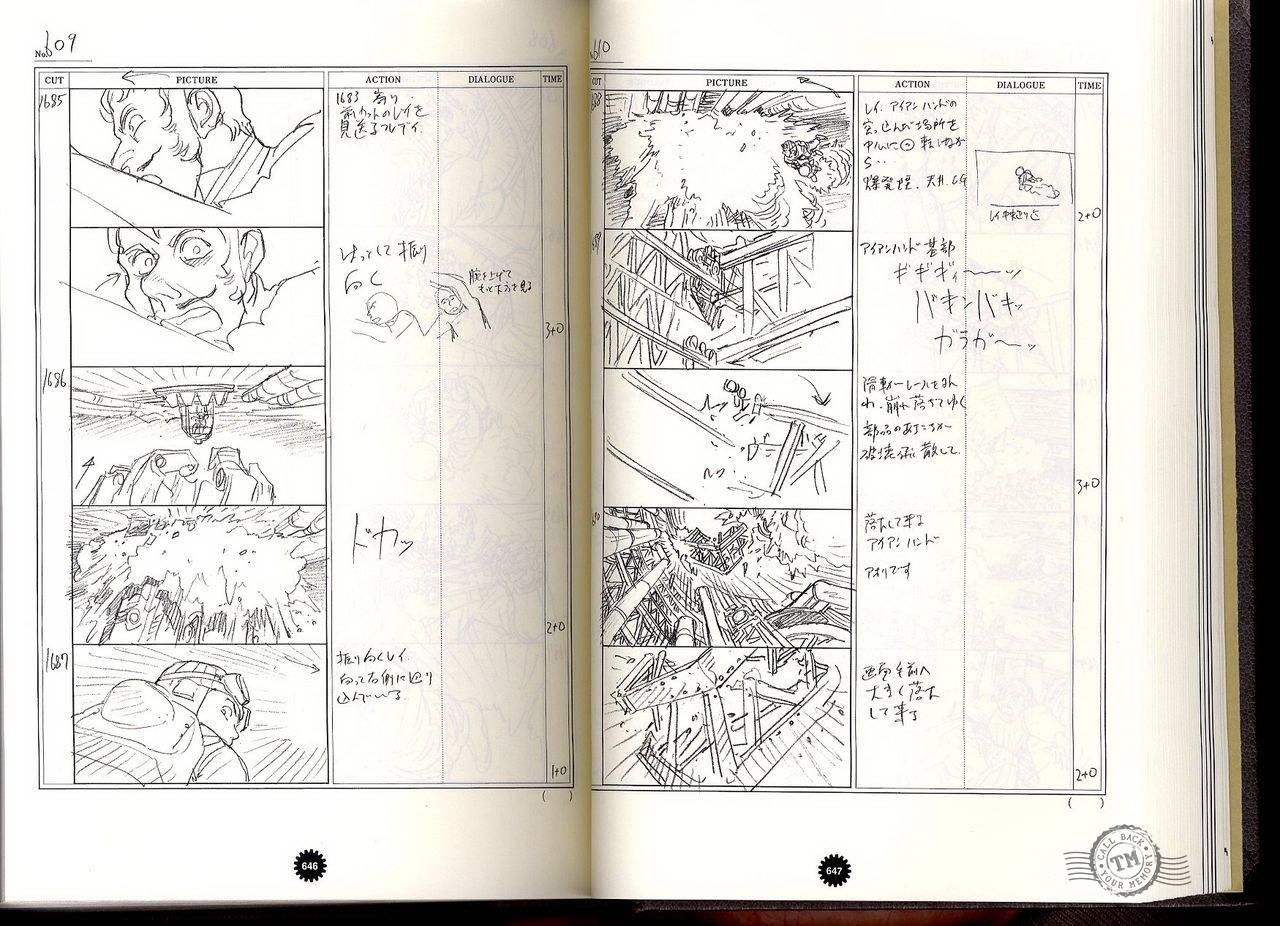 No. 609
CUT PICTURE ACTION DIALOGUE TIME
1685
1683 寄り
前カットのレイを
見送るアレフィ
はっとして振り
向く
腕を上げて
もっと下方を見る
3+0
1686
ドカッ
2+0
1687
振り向くレイ
向って右側に回り
込んでいる
1+0
( )
646
610
CUT PICTURE ACTION DIALOGUE TIME
レイ、アイアンハンドの
突っ込んだ場所を
中心に
転しなが
ら…
爆発煙、天井、BG
レイ
2+0
アイアンハンド基部
ギギギィ〜〜ッ
バキンバキッ
ガラガ〜〜ッ
滑車がレールをはん
れ、崩れ落ちてゆく
部品のあちこちが
破壊
散して
3+0
落下して来る
アイアンハンド
アオリです
画面手前へ
大きく落下
して来る
2+0
( )
647
CALL BACK
TM
YOUR MEMORY